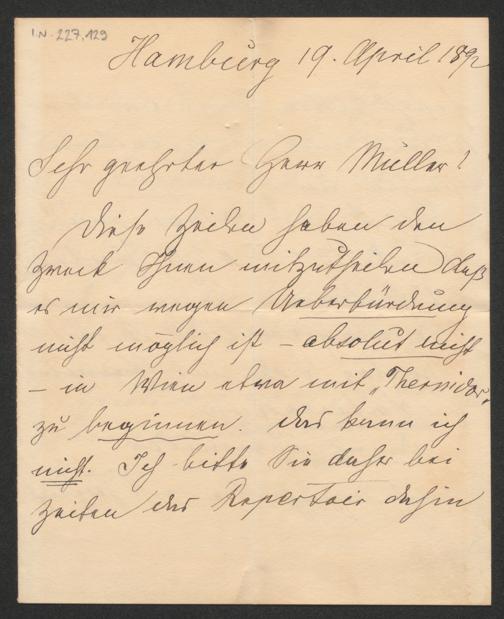 I.N. 227.129
Hamburg 19. April 1892
Sehr geehrter Herr Müller!
Diese Zeilen haben den
Zweck Ihnen mitzutheilen daß
es mir wegen Ueberbürdung
nicht möglich ist – absolut nicht
– in Wien etwa mit „Thermidor"
zu beginnen. Das kann ich
nicht. Ich bitte Sie daher bei
Zeiten das Repertoir dahin